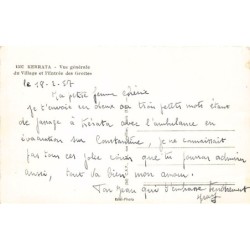 102 KERRATA - Vue générale
du Village et l'Entrée des Grottes
le 18-2-57
Ma petite femme chérie
Je t'envoie ces deux ou trois petits mots étant
de passage à Kérata avec l'ambulance en
évacuation sur Constantine, je ne connaissait
pas tous ces jolie coins que tu pourras admirer
aussi, tout va bien mon amour.
Ton Jean qui t'embrasse tendrement
Jean